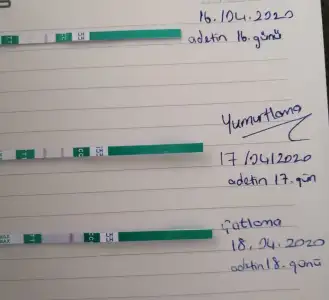 16.04.2020
adetin 16. günü
LH
LH
Yumurtlama
17/04/2020
adetin 17. gün
LH
LH
Çatlama
18.04.2020
adetin 18. günü
LH
LH